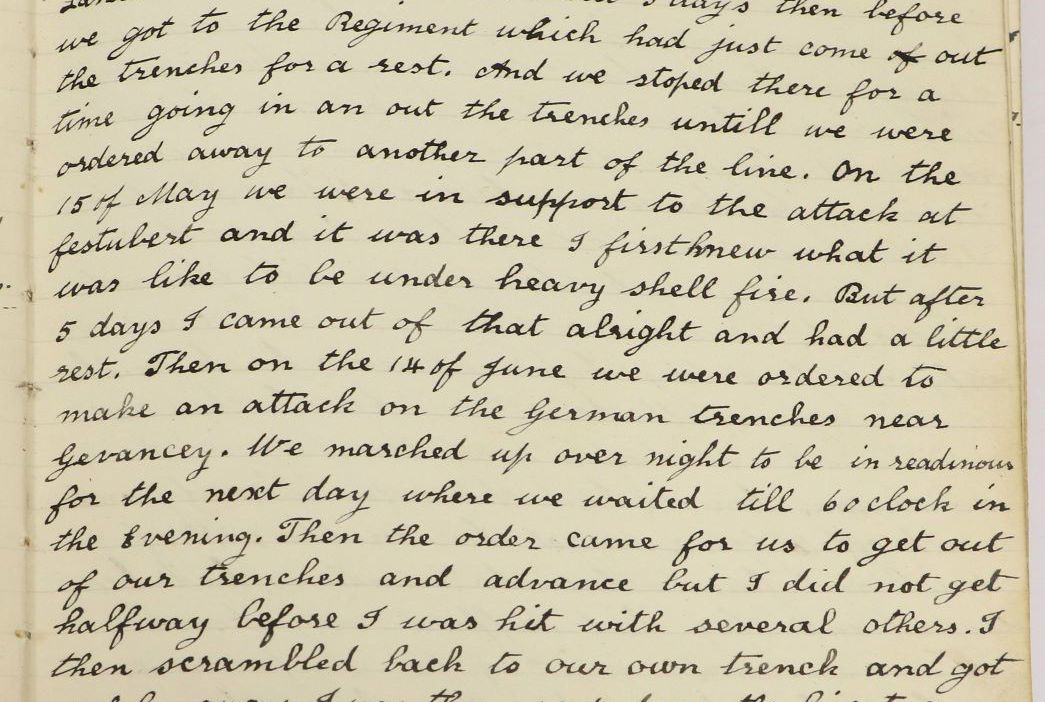 days then before
we got to the Regiment which had just come of out
the trenches for a rest. And we stoped there for a
time going in an out the trenches untill we were
ordered away to another part of the line. On the
15 of May we were in support to the attack at
festubert and it was there I first knew what it
was like to be under heavy shell fire. But after
5 days I came out of that alright and had a little
rest. Then on the 14 of June we were ordered to
make an attack on the German trenches near
Gevancey. We marched up over night to be in readinous
for the next day where we waited till 6 o clock in
the Evening. Then the order came for us to get out
of our trenches and advance but I did not get
halfway before I was hit with several others. I
then scrambled back to our own trench and got